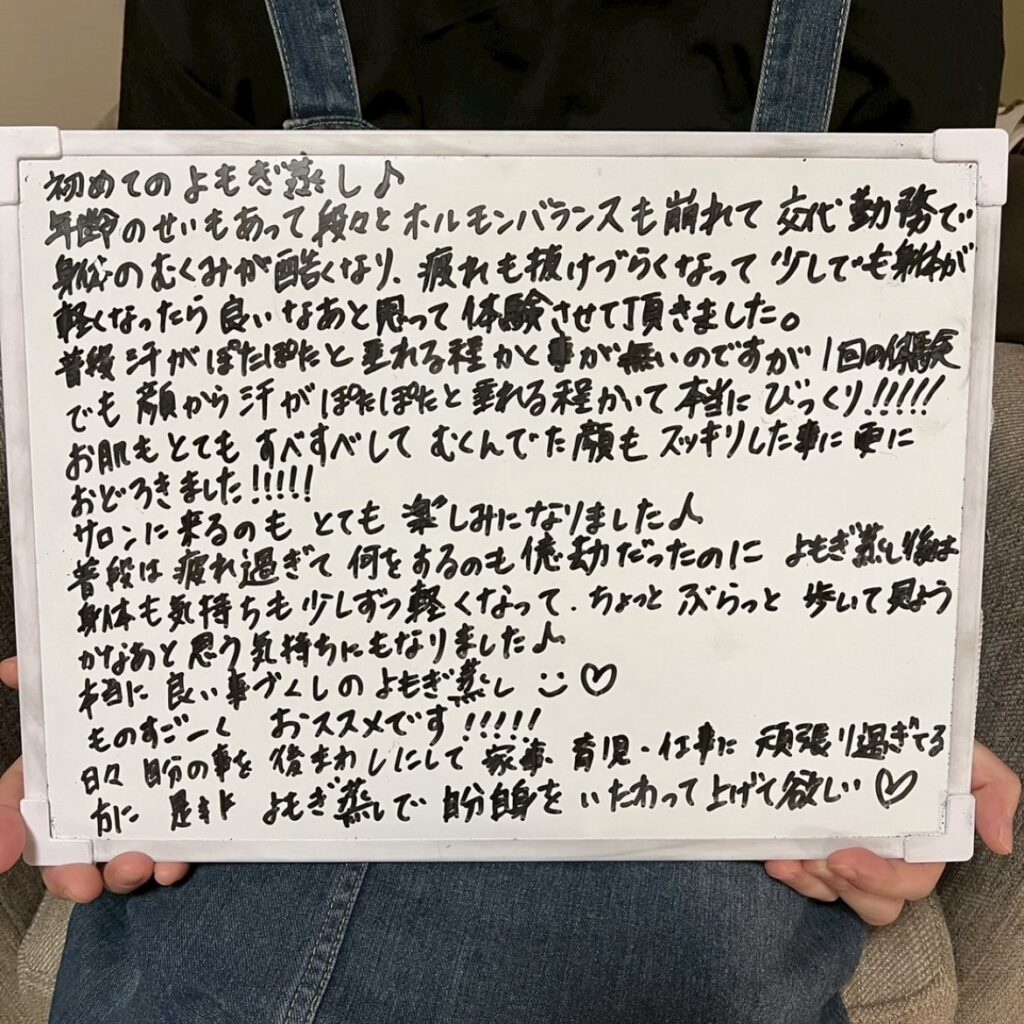 初めてのよもぎ蒸し♪
年齢のせいもあって段々とホルモンバランスも崩れて交代勤務で
身体のむくみが酷くなり、疲れも抜けづらくなって少しでも身体が
軽くなったら良いなあと思って体験させて頂きました。
普段汗がぽたぽたと垂れる程かく事が無いのですが1回の体験
でも顔から汗がぽたぽたと垂れる程かいて本当にびっくり!!!!!
お肌もとてもすべすべしてむくんでた顔もスッキリした事に更に
おどろきました!!!!!
サロンに来るのもとても楽しみになりました♪
普段は疲れ過ぎて何をするのも億劫だったのによもぎ蒸し後は
身体も気持ちも少しずつ軽くなって、ちょっとぶらっと歩いて見よう
かなあと思う気持ちにもなりました♪
本当に良い事づくしのよもぎ蒸し ☺♡
ものすごーくおススメです!!!!!
日々自分の事を後まわしにして家事、育児・仕事に頑張り過ぎてる
方に是非よもぎ蒸しで自分自身をいたわって上げて欲しい♡